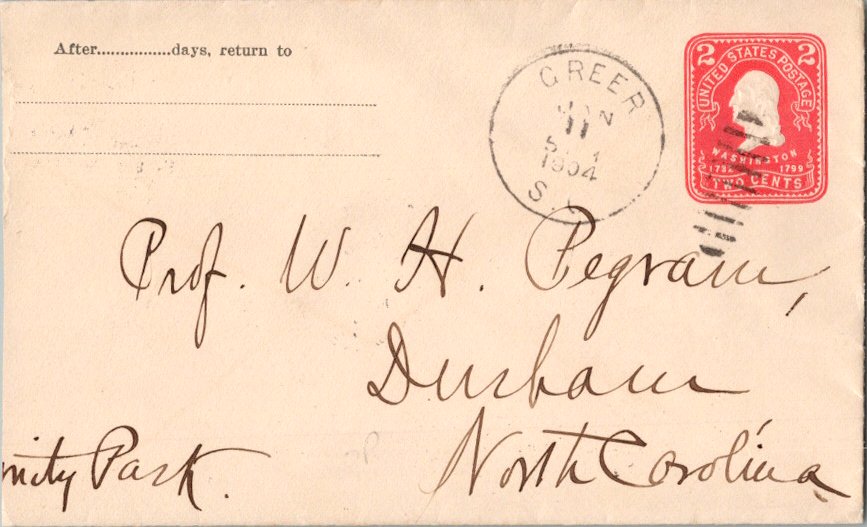 After................days, return to
GREER
JAN
11
1904
S.
2 2
UNITED STATES POSTAGE
WASHINGTON
1799
TWO CENTS
Prof. W. H. Pegram,
Durham
North Carolina
Park.